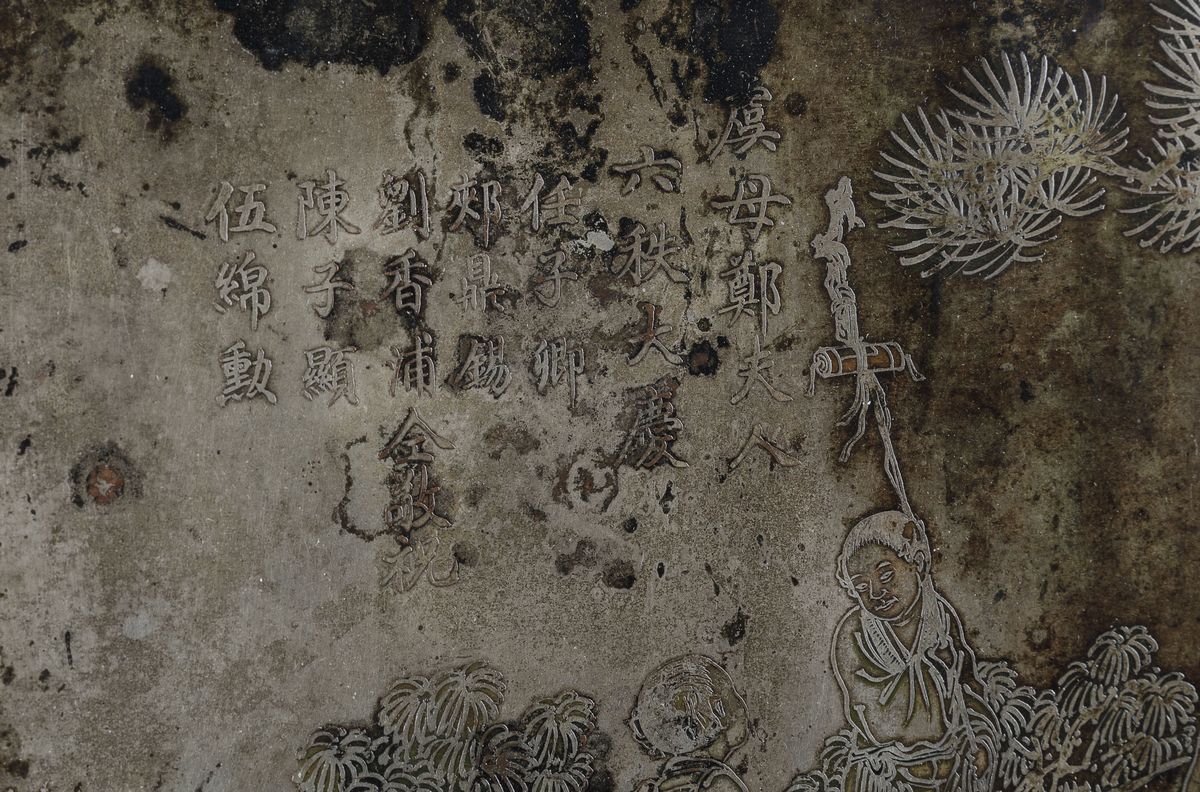 虞母鄭夫人
六秩大慶
任子卿
郟鼎錫
劉香浦仝敬祝
陳子顯
伍綿勳